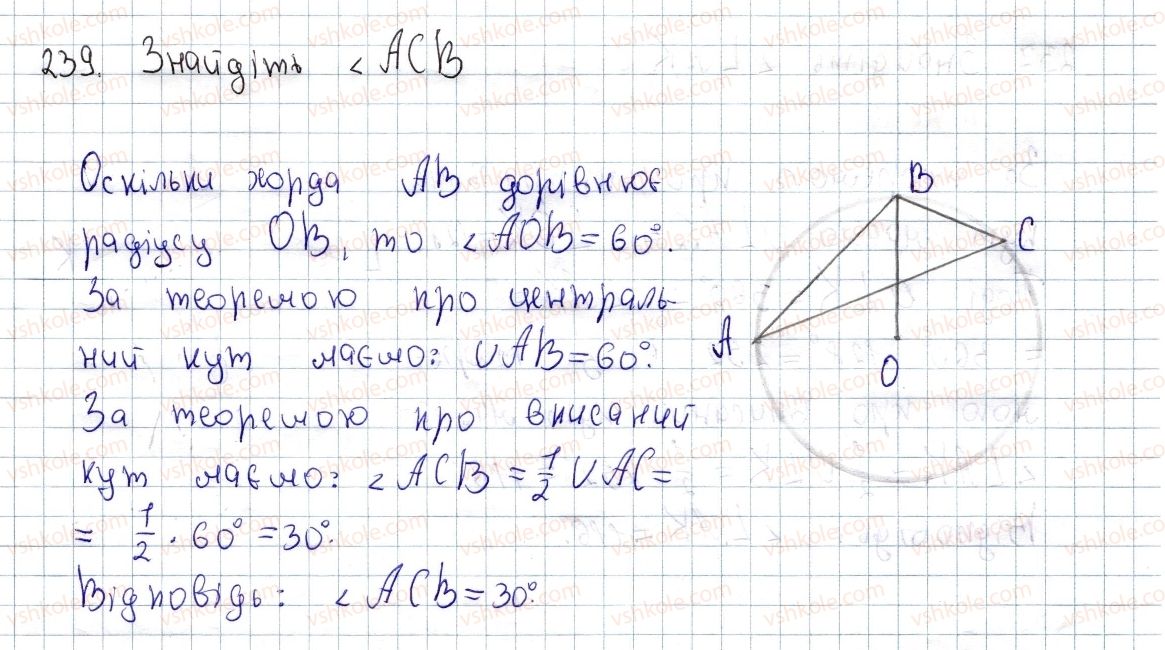 239. Знайдіть < ACB
Оскільки хорда AB дорівнює
радіусу OB, то < AOB = 60°.
За теоремою про централь-
ний кут маємо: ∪AB = 60°.
За теоремою про вписаний
кут маємо: < ACB = 1/2 ∪AC =
= 1/2 · 60° = 30°.
Відповідь: < ACB = 30°.
B
C
A
O
vshkole.com